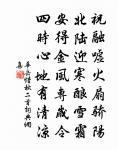 祝融噓火扇驕陽
北陸迎寒釀雪霜
安得金風專歲令
四時心地有清涼
秋二首